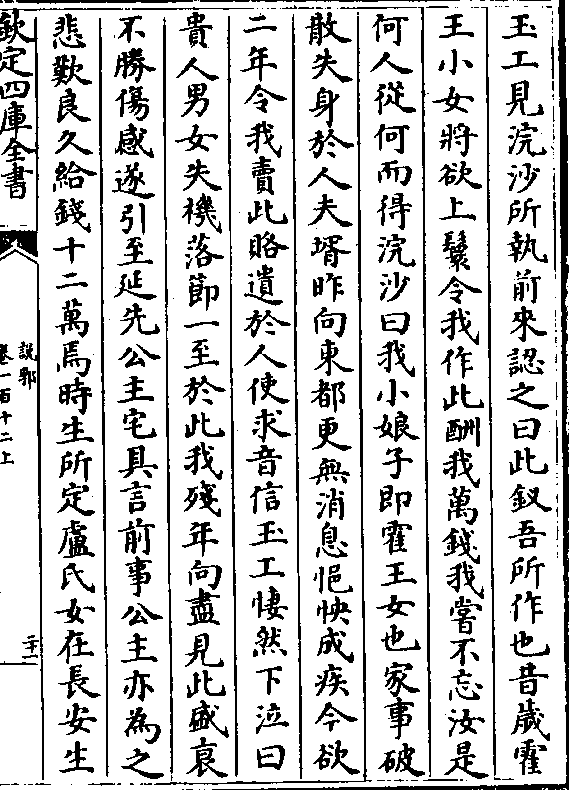 玉工見浣沙所執前來認之曰此釵吾所作也昔歲霍
王小女將欲上鬟令我作此酬我萬錢我嘗不忘汝是
何人從何而得浣沙曰我小娘子即霍王女也家事破
散失身於人夫壻昨向東都更無消息悒怏成疾今欲
二年令我賣此賂遺於人使求音信玉工悽然下泣曰
貴人男女失機落節一至於此我殘年向盡見此盛衰
不勝傷感遂引至延先公主宅具言前事公主亦為之
悲歎良久給錢十二萬焉時生所定盧氏女在長安生
欽定四庫全書
說郛
卷一百十二上
二十一